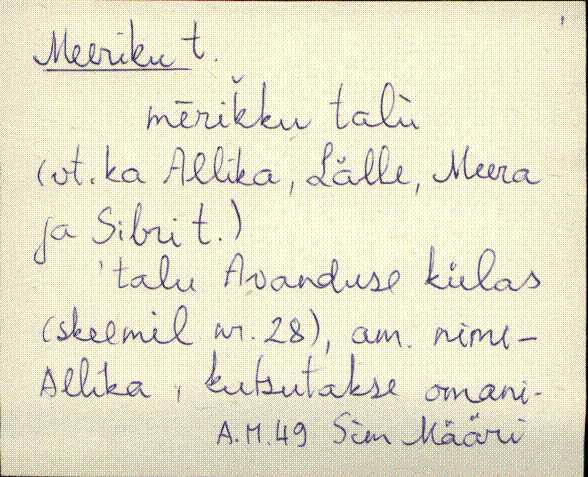 Meeriku t.
mērik̆ku talù
(vt. ka Allika, Lälle, Meera
ja Sibri t.)
'talu Avanduse külas
(skeemil nr. 28), am. nimi-
Allika, kutsutakse omani-
A.M.49 Sim Määri